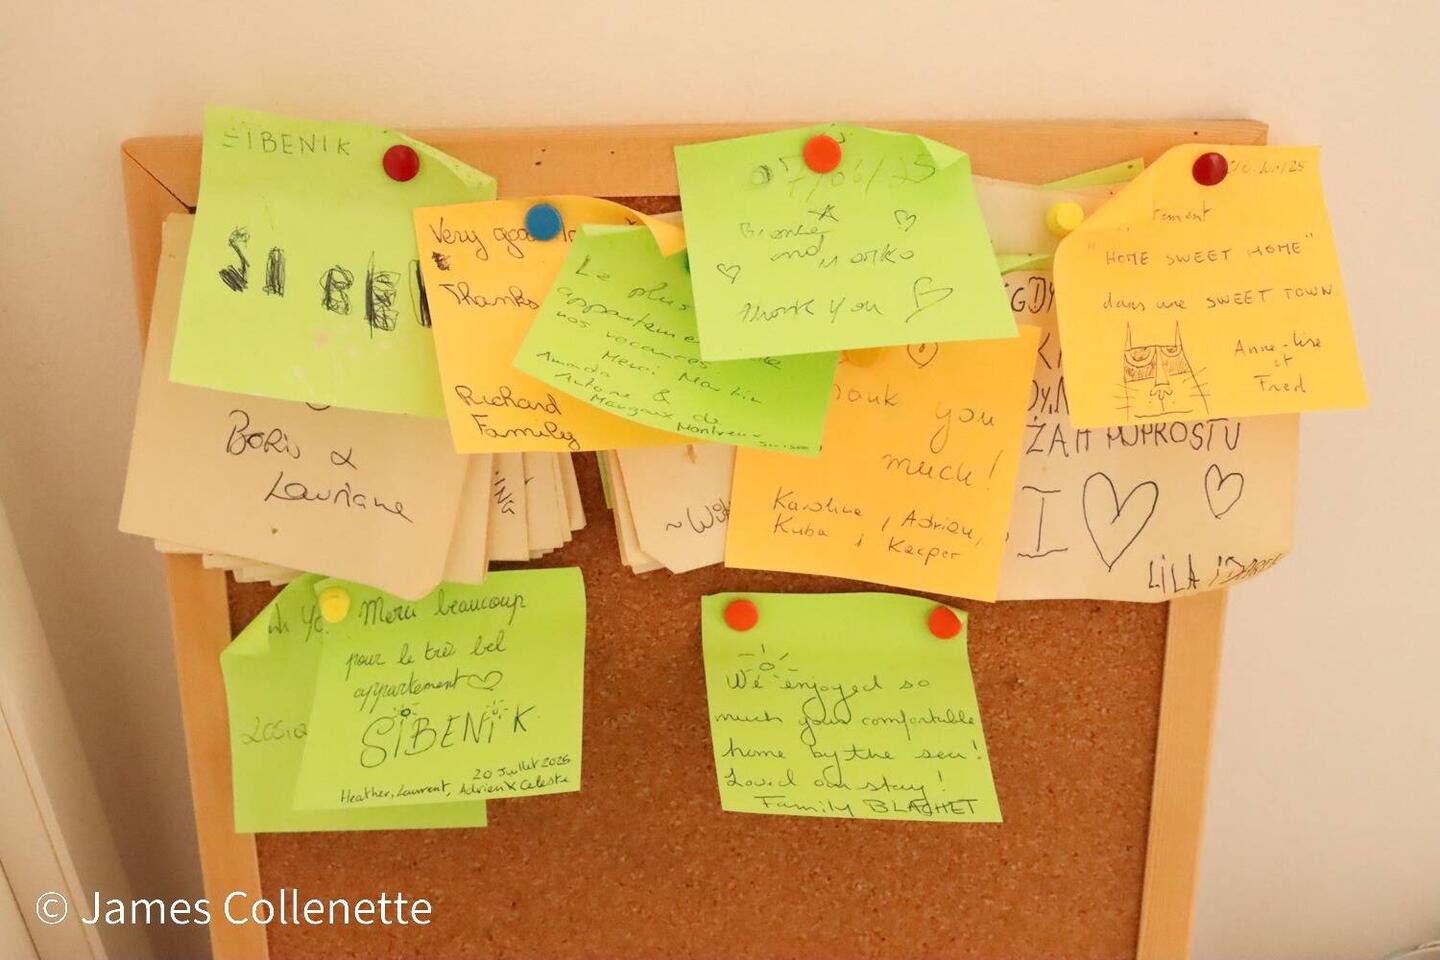 SIBENIK
SIBEN
Boris &
Lauriane
Very good
Thanks
Richard
Family
Le plus
appartem
nos vacances.
Merci Martin
Amanda
Antoine & de
Margaux Montreux
Suisse
07/06/25
and Marko
Thank You
you
much!
Karolina, Adrian,
Kuba i Kacper
"HOME SWEET HOME"
dans une SWEET TOWN.
Anne-Lise
et
Fred
POPROSTU
I
LILA
Merci beaucoup
pour le très bel
appartement
SIBENIK
20 Juillet 2025
Heather, Laurent, Adrien & Celeste
We enjoyed so
much your comfortable
home by the sea!
Loved our stay!
Family BLACHET
© James Collenette